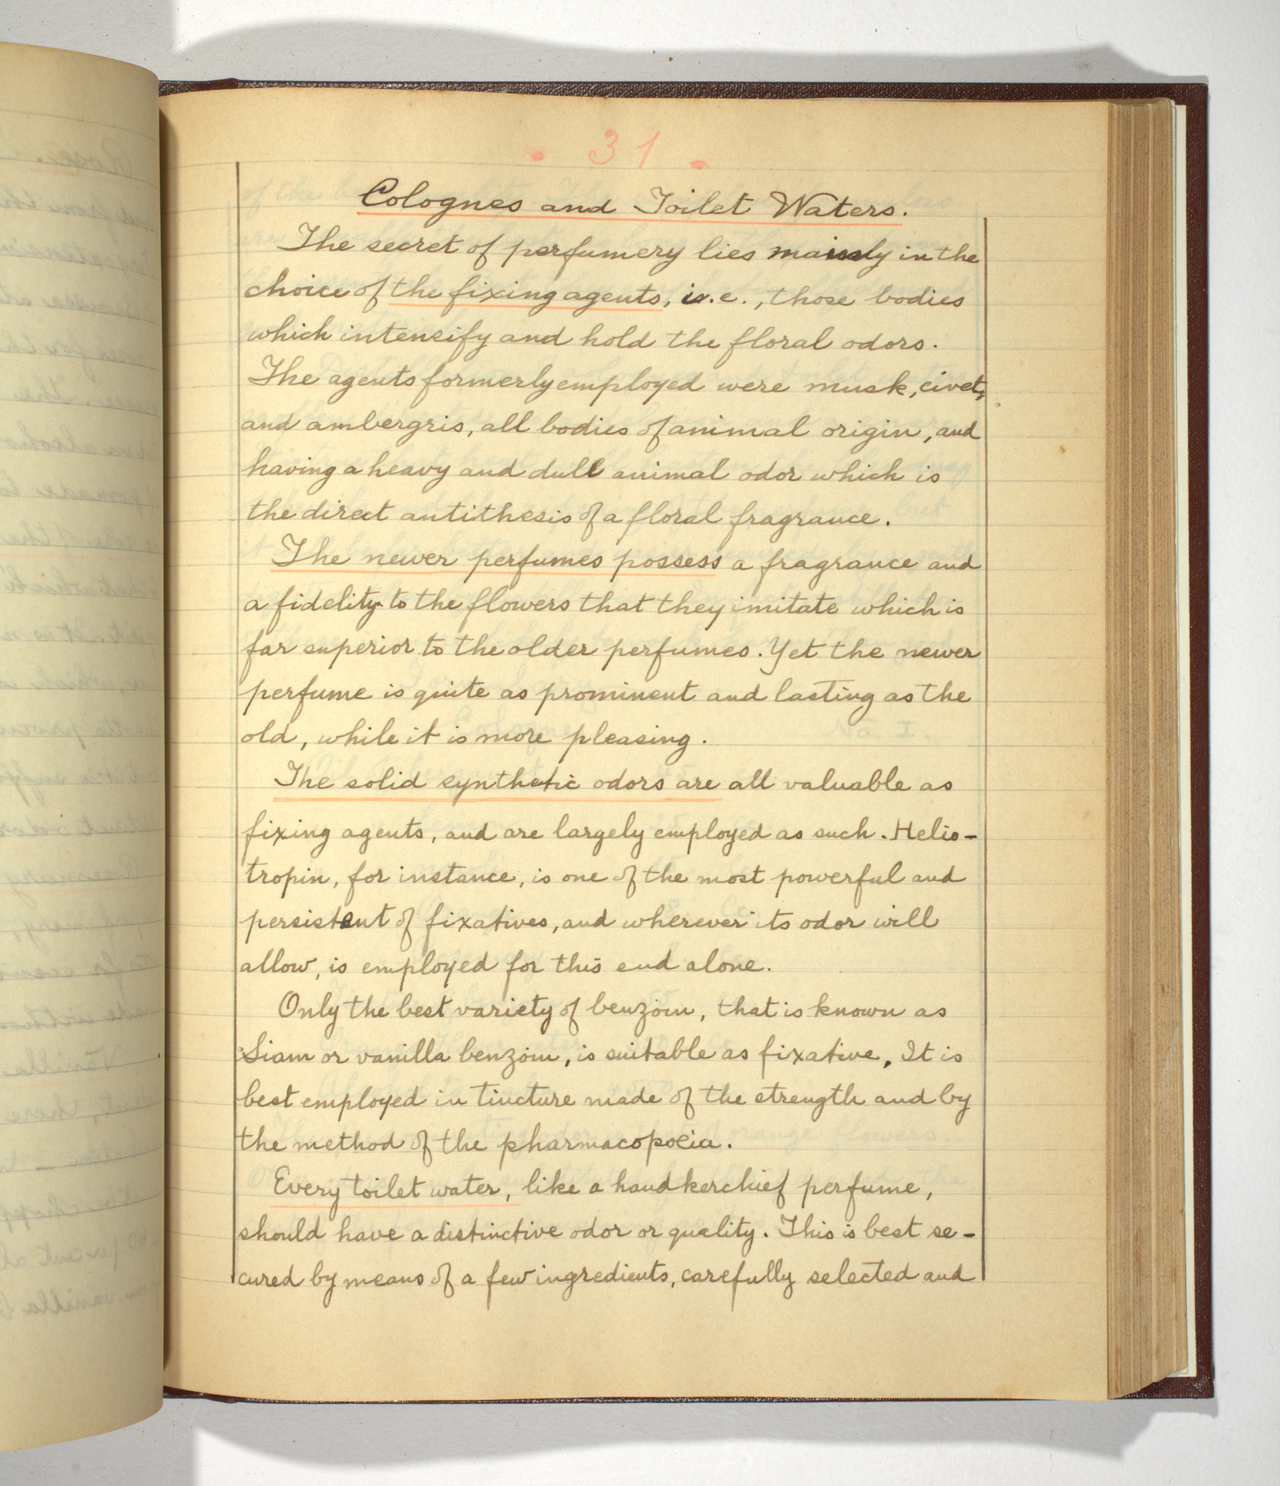 31
Colognes and Toilet Waters.
The secret of perfumery lies mainly in the
choice of the fixing agents, i.e., those bodies
which intensify and hold the floral odors.
The agents formerly employed were musk, civet,
and ambergris, all bodies of animal origin, and
having a heavy and dull animal odor which is
the direct antithesis of a floral fragrance.
The newer perfumes possess a fragrance and
a fidelity to the flowers that they imitate which is
far superior to the older perfumes. Yet the newer
perfume is quite as prominent and lasting as the
old, while it is more pleasing.
The solid synthetic odors are all valuable as
fixing agents, and are largely employed as such. Helio-
tropin, for instance, is one of the most powerful and
persistent of fixatives, and wherever its odor will
allow, is employed for this end alone.
Only the best variety of benzoin, that is known as
Siam or vanilla benzoin, is suitable as fixative. It is
best employed in tincture made of the strength and by
the method of the pharmacopoeia.
Every toilet water, like a handkerchief perfume,
should have a distinctive odor or quality. This is best se-
cured by means of a few ingredients, carefully selected and